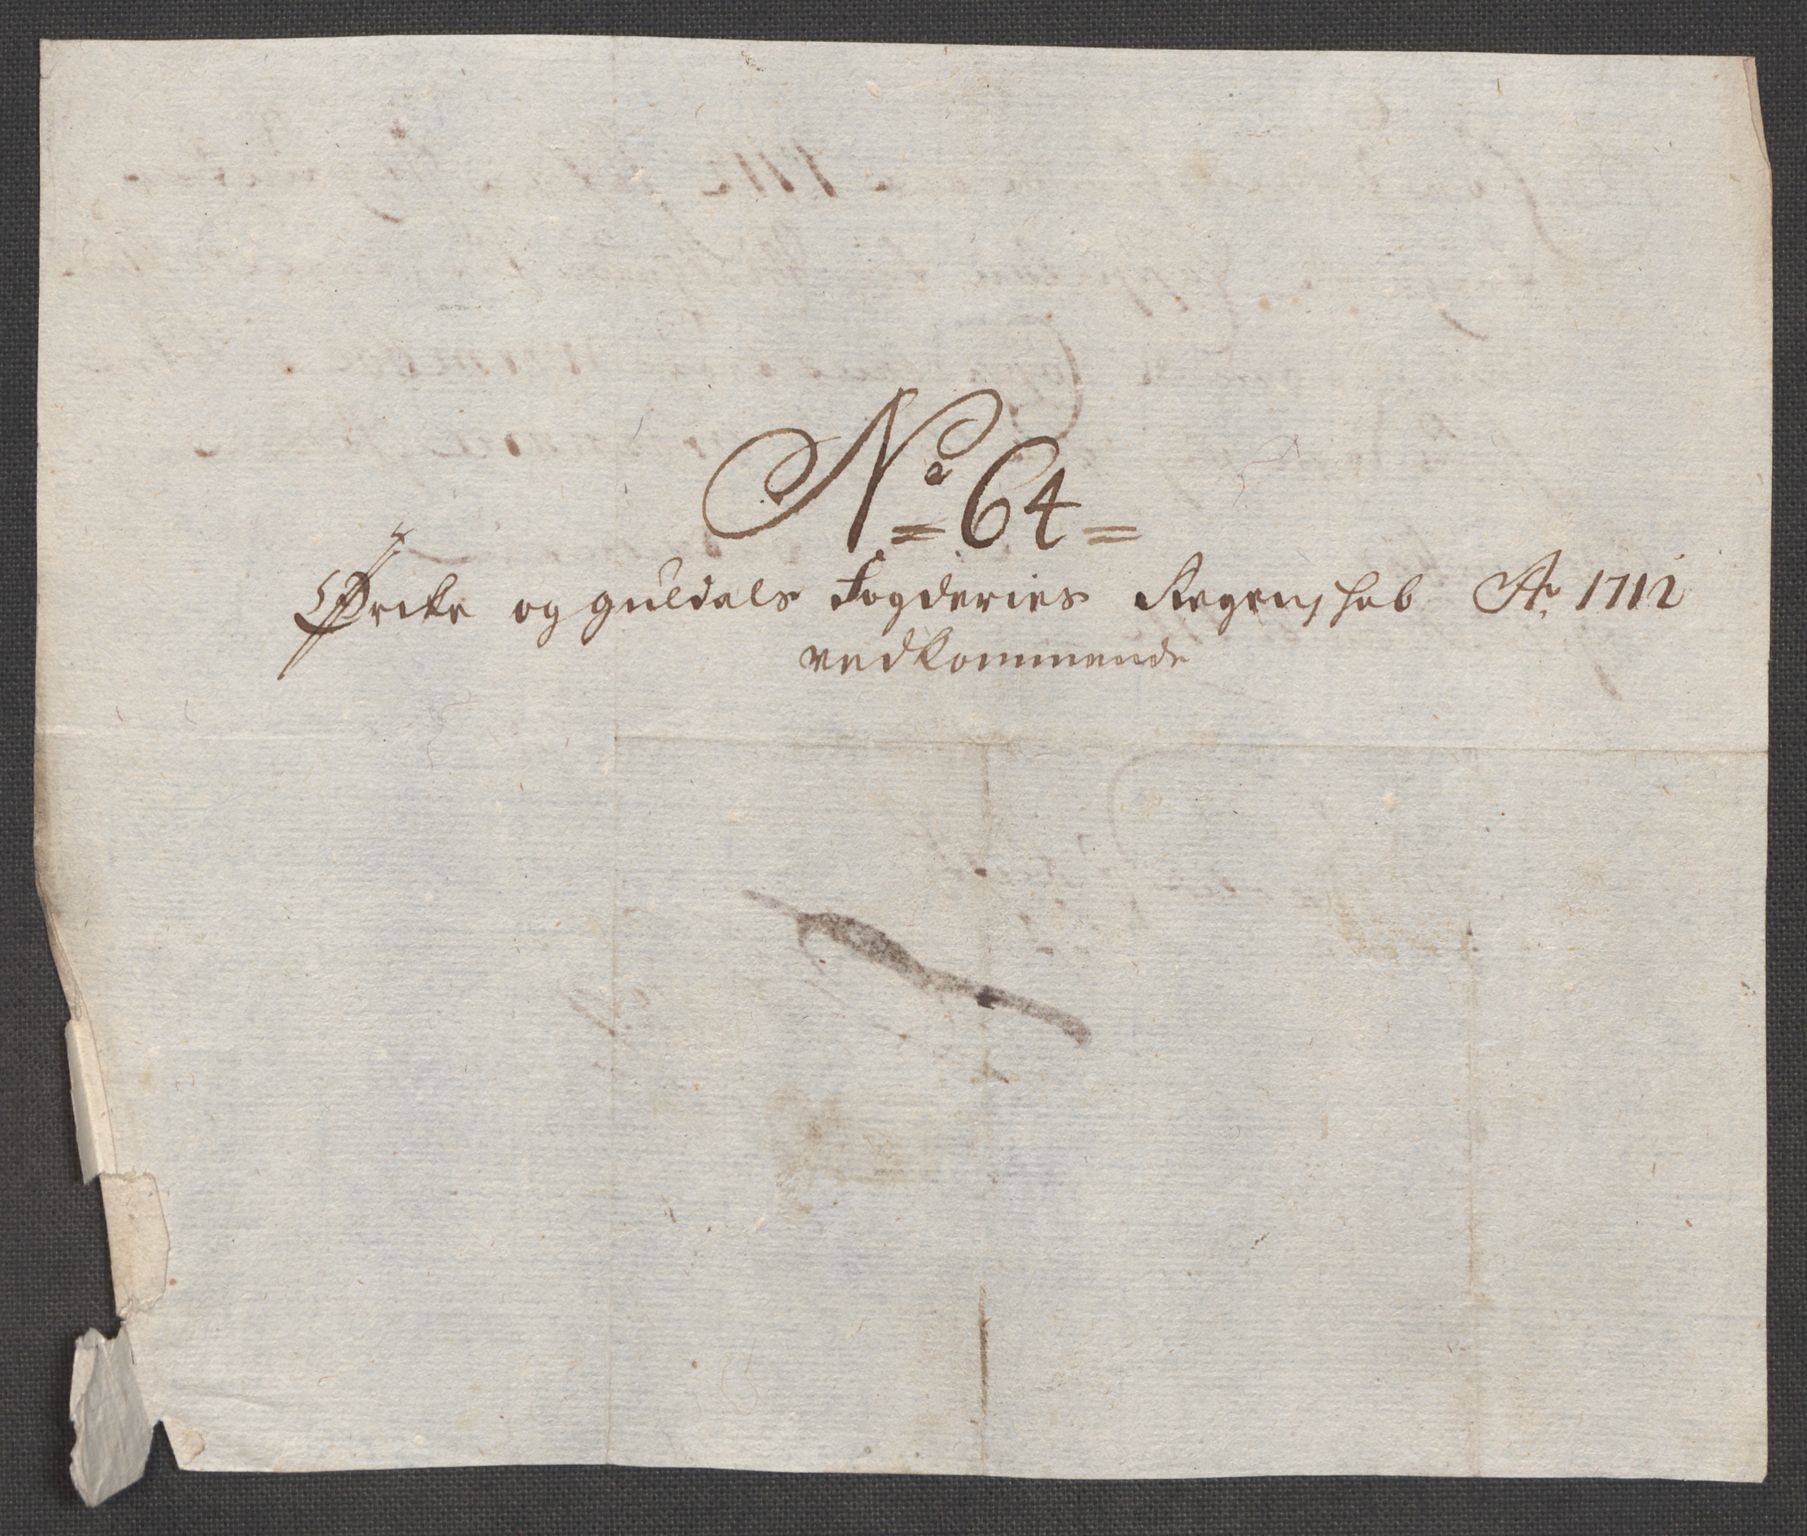 No 64
Ørcke og guldals Fogderies Regenschab Ao 1712
vedkommende